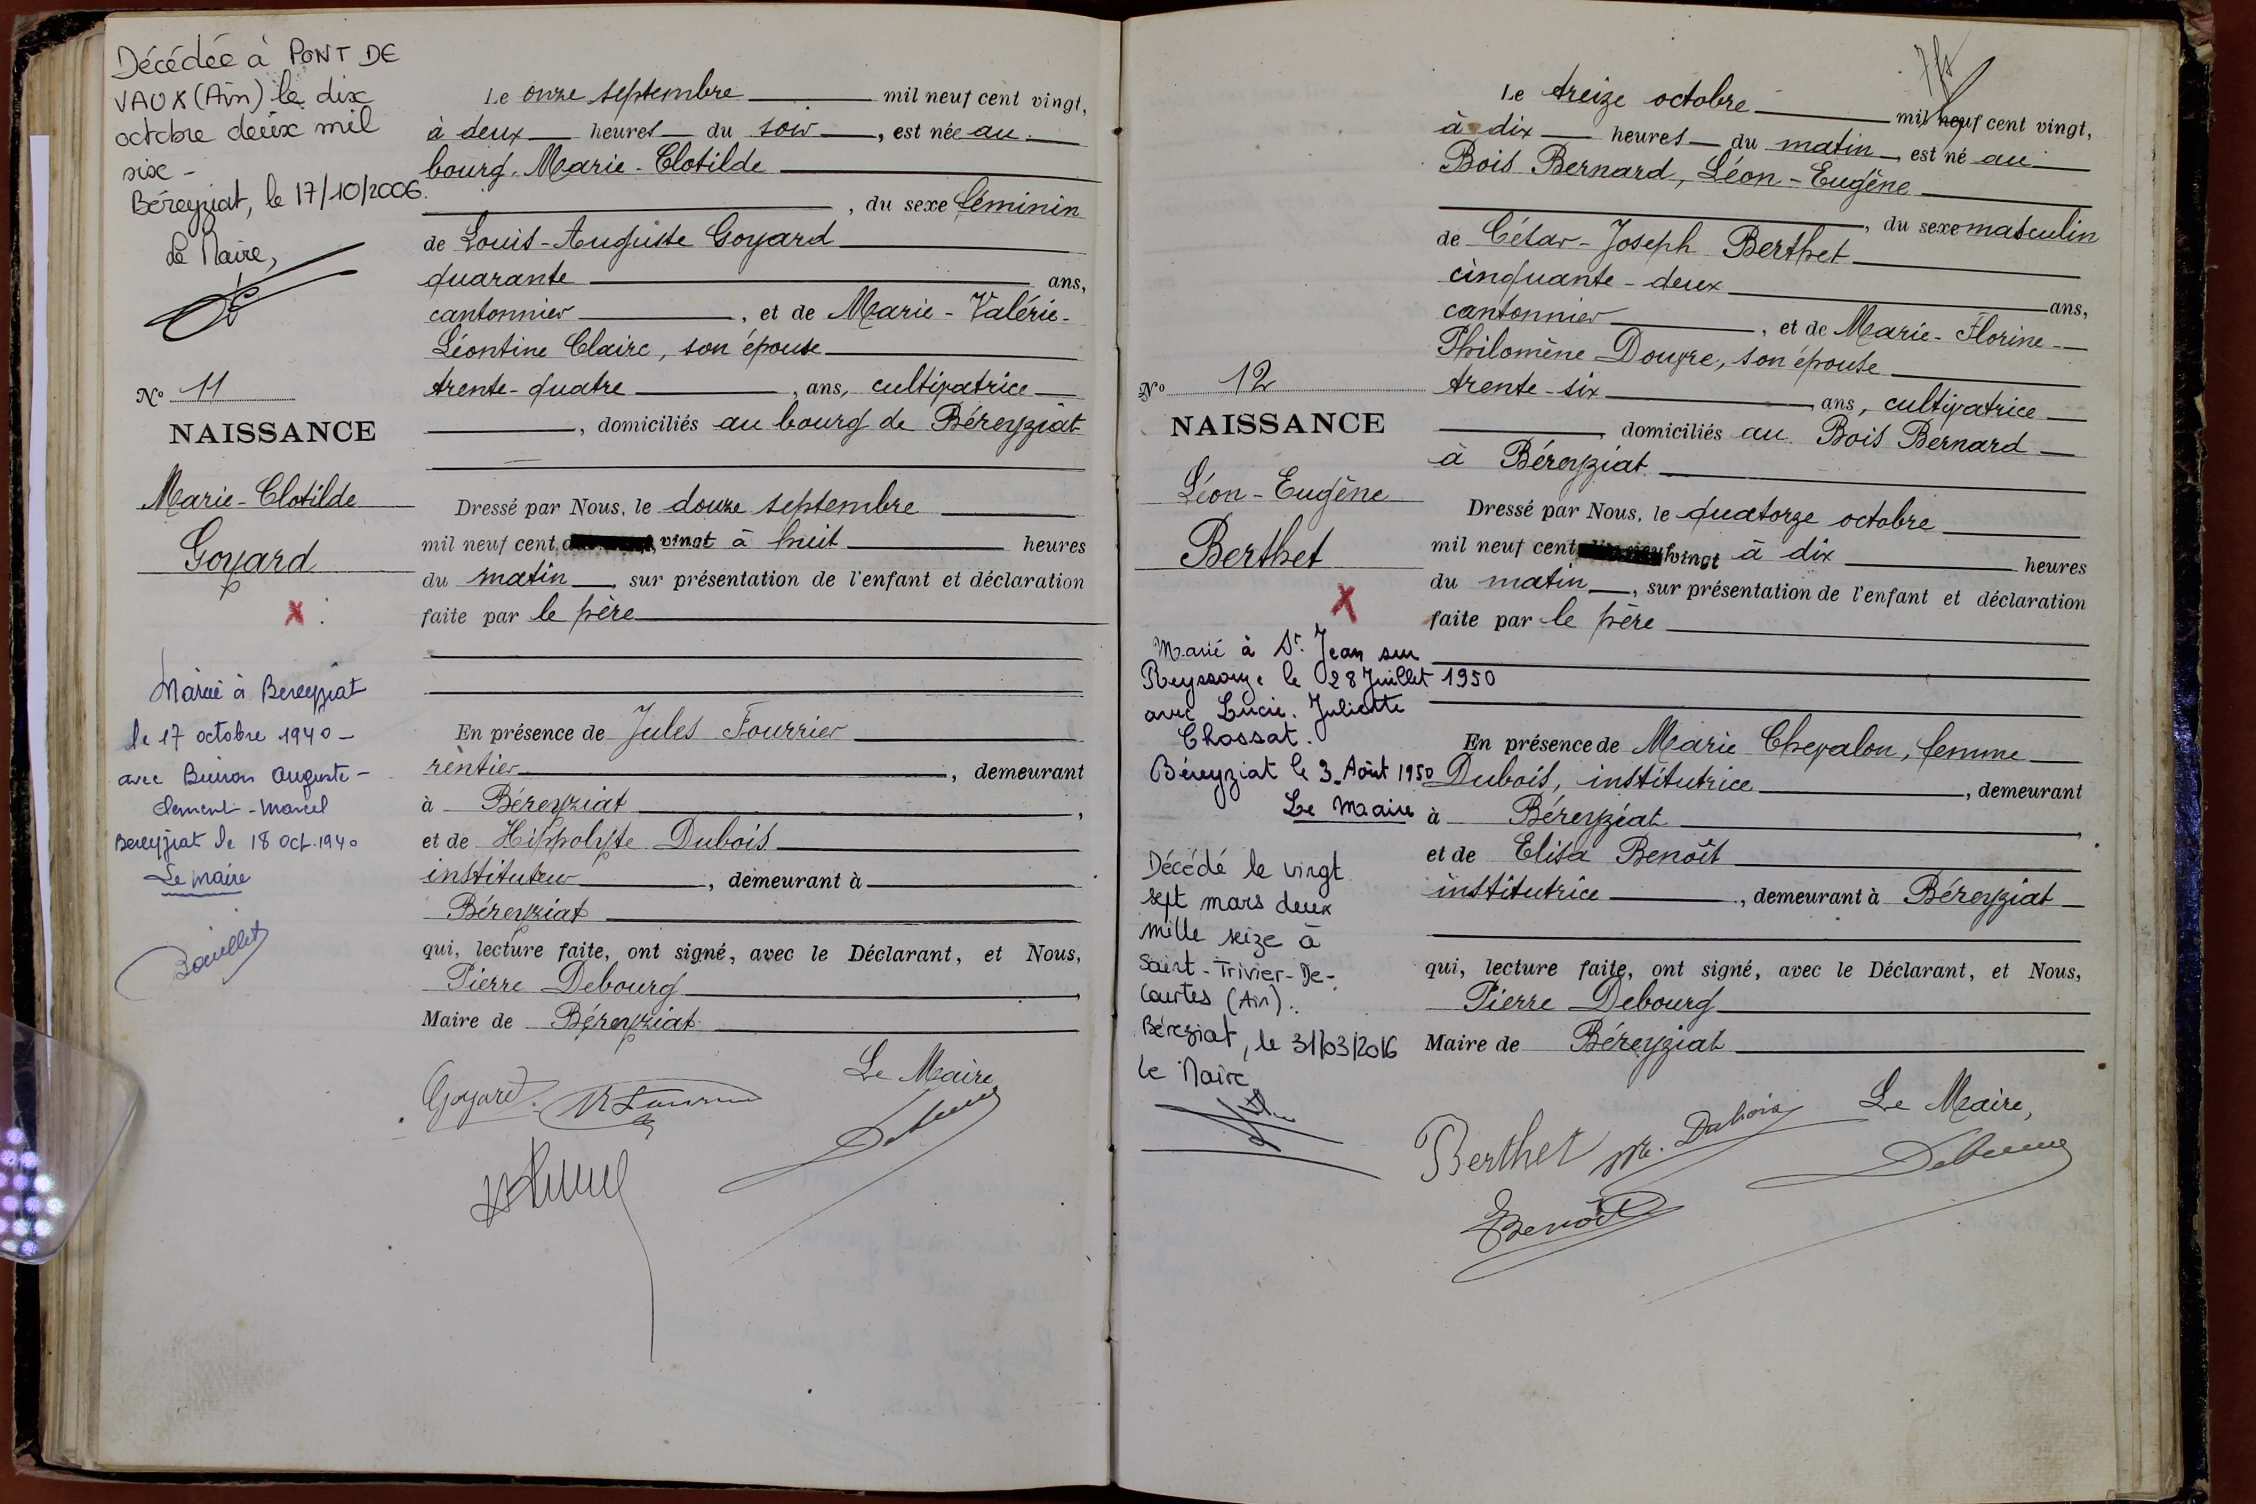 Décédée à PONT DE
VAUX (Ain) le dix
octobre deux mil
six -
Béreyziat, le 17/10/2006.
Le Maire,
No 11
NAISSANCE
Marie-Clotilde
Goyard
X
Mariée à Bereyziat
le 17 octobre 1940 -
avec Buiron Auguste -
Clement - Marcel
Bereyziat le 18 Oct. 1940
Le maire
Le onze septembre mil neuf cent vingt,
à deux heures du soir, est née au
bourg. Marie-Clotilde
, du sexe féminin
de Louis-Auguste Goyard
quarante ans,
cantonnier, et de Marie-Valérie-
Léontine Claire, son épouse
trente-quatre, ans, cultivatrice
, domiciliés au bourg de Béreyziat
Dressé par Nous, le douze septembre
mil neuf cent vingt à huit heures
du matin, sur présentation de l'enfant et déclaration
faite par le père
En présence de Jules Fourrier
rentier, demeurant
à Béreyziat,
et de Hippolyte Dubois
instituteur, demeurant à
Béreyziat
qui, lecture faite, ont signé, avec le Déclarant, et Nous,
Pierre Debourg,
Maire de Béreyziat
Le Maire
Goyard
No 12
NAISSANCE
Léon-Eugène
Berthet
X
Marié à St Jean sur
Reyssouze le 28 Juillet 1950
avec Lucie. Juliette
Chossat.
Béreyziat le 3 Août 1950
Le Maire
Décédé le vingt
sept mars deux
mille seize à
Saint-Trivier-De-
Courtes (Ain).
Béreziat, le 31/03/2016
Le Maire
Le treize octobre mil neuf cent vingt,
à dix heures du matin, est né au
Bois Bernard, Léon-Eugène
, du sexe masculin
de César-Joseph Berthet
cinquante-deux ans,
cantonnier, et de Marie-Florine-
Philomène Douvre, son épouse
trente-six ans, cultivatrice
, domiciliés au Bois Bernard
à Béreyziat
Dressé par Nous, le quatorze octobre
mil neuf cent vingt à dix heures
du matin, sur présentation de l'enfant et déclaration
faite par le père
En présence de Marie Chevalon, femme
Dubois, institutrice, demeurant
à Béreyziat,
et de Elisa Benoît
institutrice, demeurant à Béreyziat
qui, lecture faite, ont signé, avec le Déclarant, et Nous,
Pierre Debourg
Maire de Béreyziat
Le Maire,
Berthet M. Dubois
EBenoît